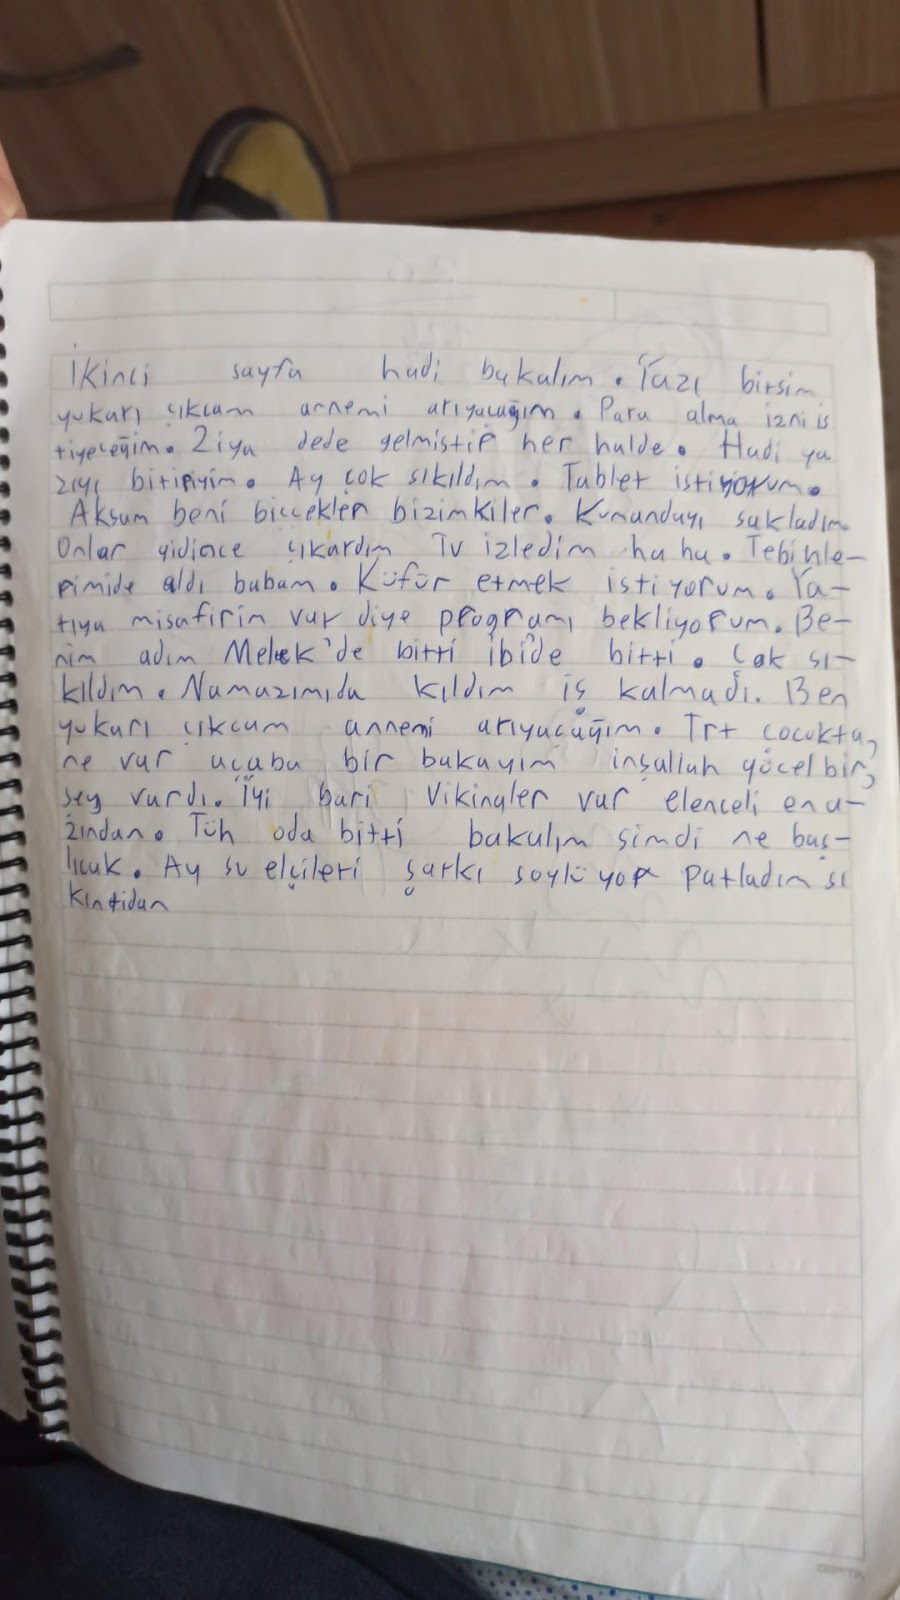 İkinci sayfa hadi bakalım. Yazı bitsin
yukarı çıkcam annemi arıyacağım. Para alma izni is
tiyeceğim. Ziya dede gelmiştir her halde. Hadi ya
zıyı bitiriyim. Ay çok sıkıldım. Tablet istiyorum.
Akşam beni biççekler bizimkiler. Kumandayı sakladım
Onlar gidince çıkardım Tv izledim ha ha. Tebihle-
rimide aldı babam. Küfür etmek istiyorum. Ya-
tıya misafirim var diye programı bekliyorum. Be-
nim adım Melek'de bitti ibi'de bitti. Çok sı-
kıldım. Namazımıda kıldım iş kalmadı. Ben
yukarı çıkcam annemi arıyacağım. Trt çocukta,
ne var acaba bir bakayım inşallah göcel bir,
şey vardı. İyi bari Vikingler var elenceli ena-
zından. Tüh oda bitti bakalım şimdi ne baş-
lıcak. Ay su elçileri şarkı soylüyor patladım sı
kıntıdan